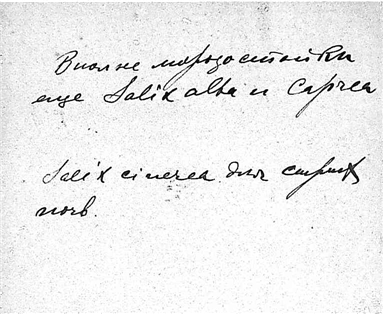 Вполне морозостойки
еще Salix alba и Caprea
Salix cinerea для сырых
почв.